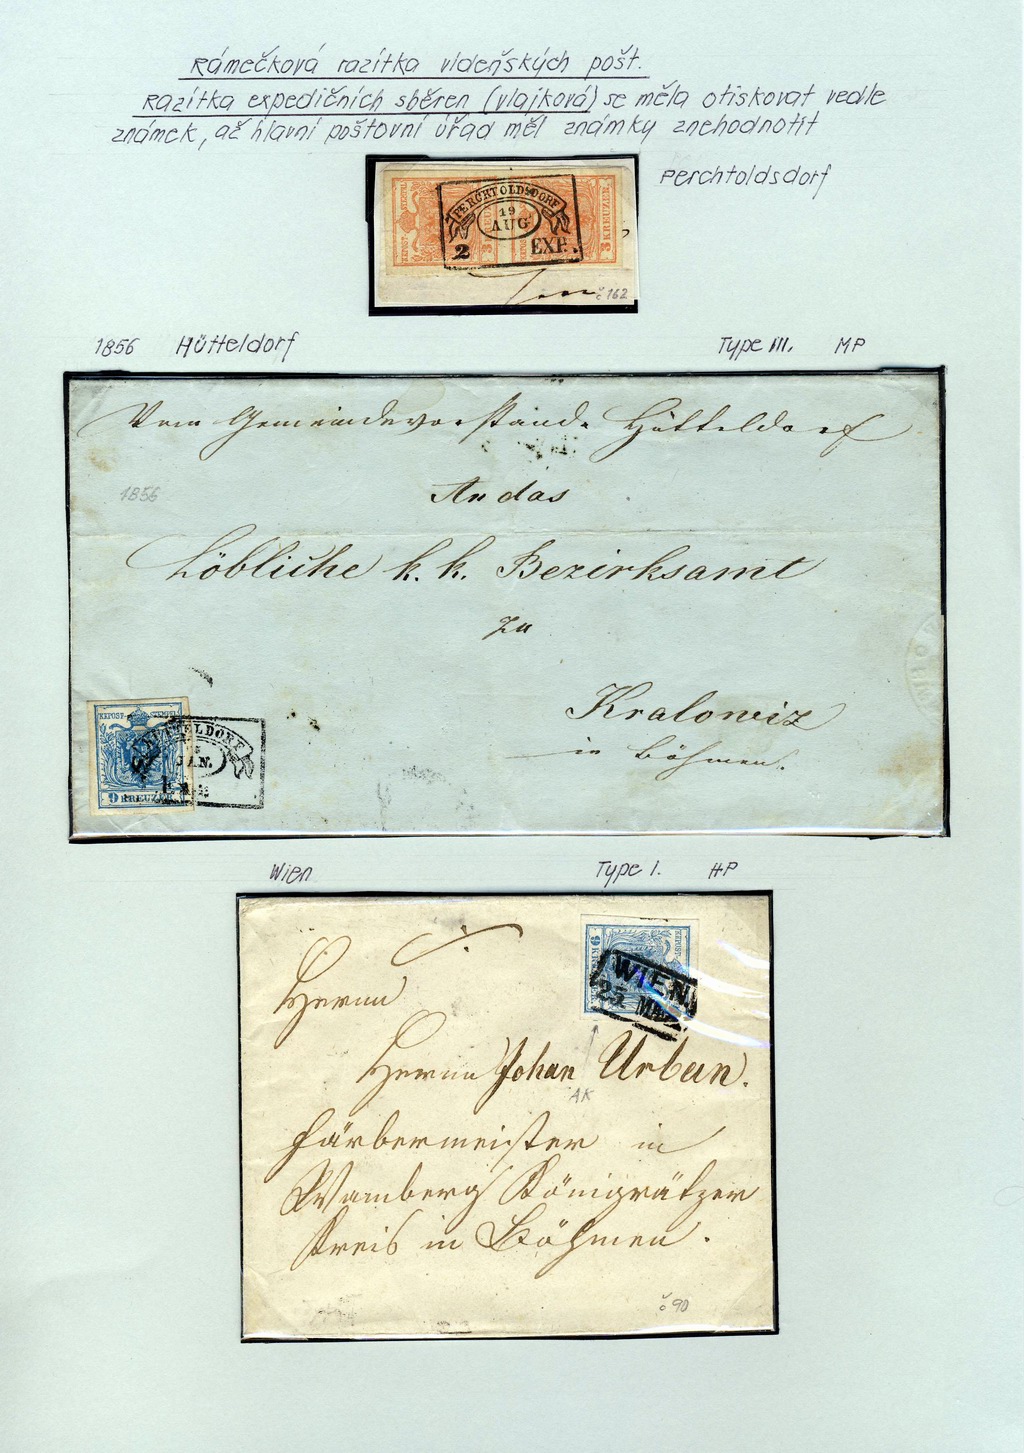 Rámečková razítka vídeňských pošt.
Razítka expedičních sběren (vlajková) se měla otiskovat vedle
známek, až hlavní poštovní úřad měl známky znehodnotit
Perchtoldsdorf
PERCHTOLDSDORF
19
AUG.
2 EXP.
3 KREUZER
č 162
1856 Hütteldorf Type III. MP
Vom Gemeindevorstande Hütteldorf
1856
An das
Löbliche k. k. Bezirksamt
zu
Kralowiz
in Böhmen.
KKPOST-STEMPEL
HÜTTELDORF
JAN.
9 KREUZER
Wien Type I. HP
WIEN
25
Herrn
Herrn Johan Urban.
AK
Färbermeister in
Wamberg Königrätzer
Kreis in Böhmen.
č 90